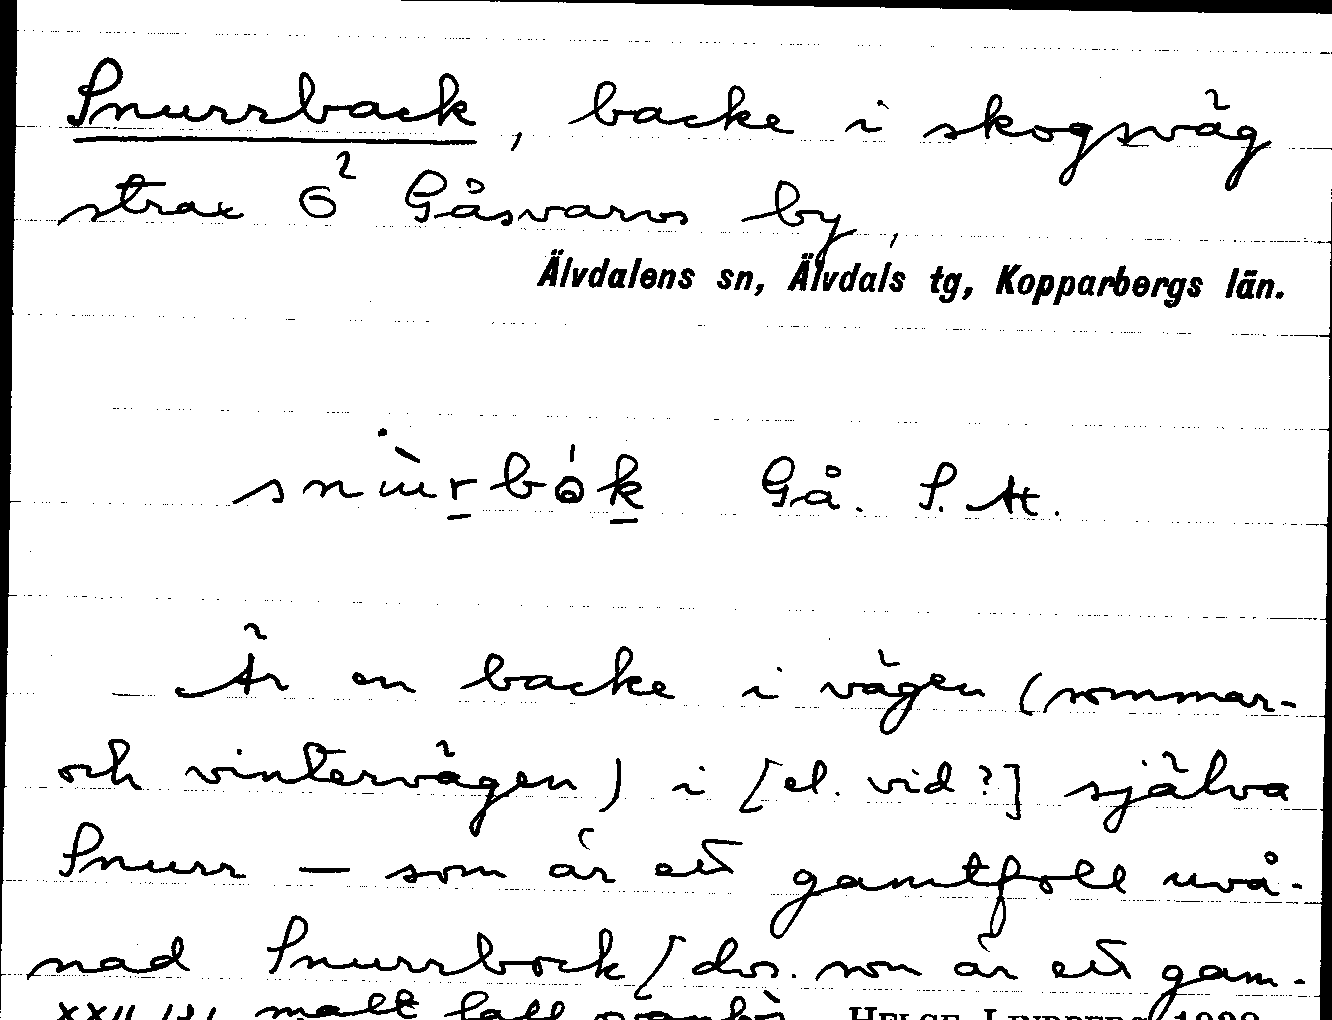 Snurrback, backe i skogsväg
strax Ö² Gåsvarvs by,
Älvdalens sn, Älvdals tg, Kopparbergs län.
Gå. S. M.
Är en backe i vägen (sommar-
och vintervägen) i [el. vid?] själva
Snurr — som är ett gamtfoll uvå-
nad Snurrbock [dvs. som är ett gam-
malt fall ovanför